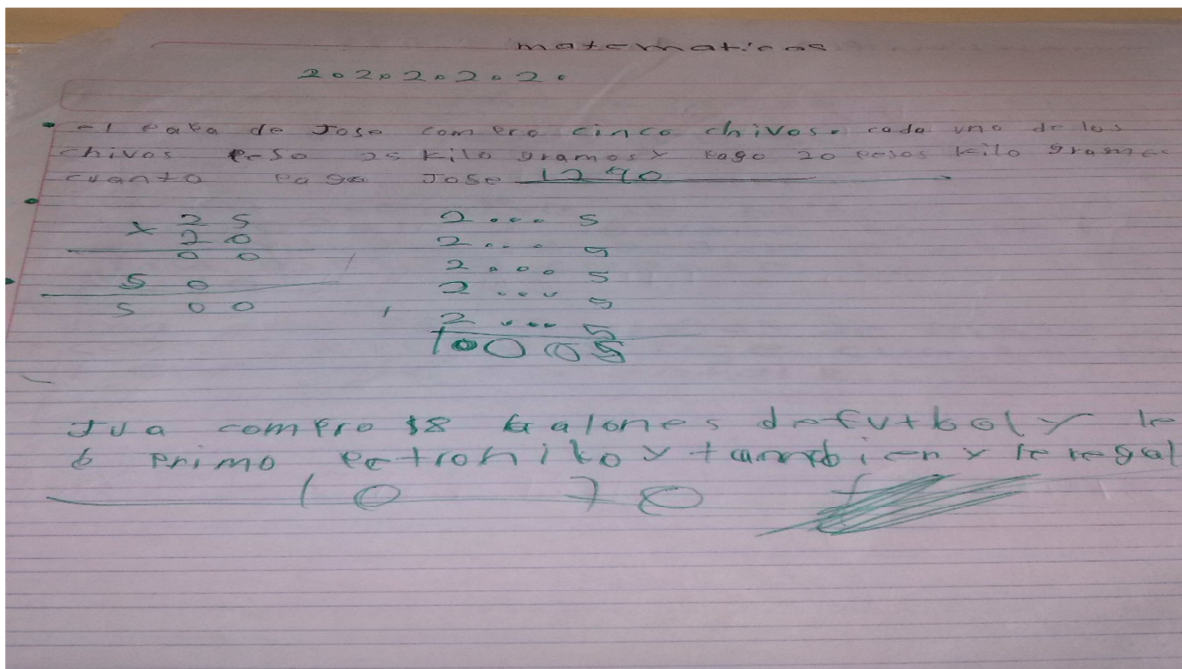 matematicas
2.2.2.2.2.
el papa de Jose compro cinco chivos. cada uno de los
chivos peso 25 kilo gramos y pago 20 pesos kilo gramo
cuanto pago Jose 1290
x 25
20
00
50
500
2....5
2....5
2....5
2....5
2....5
10005
Jua compro 18 balones de futbol y le
6 primo petroniko y tambien y le regal
10 70